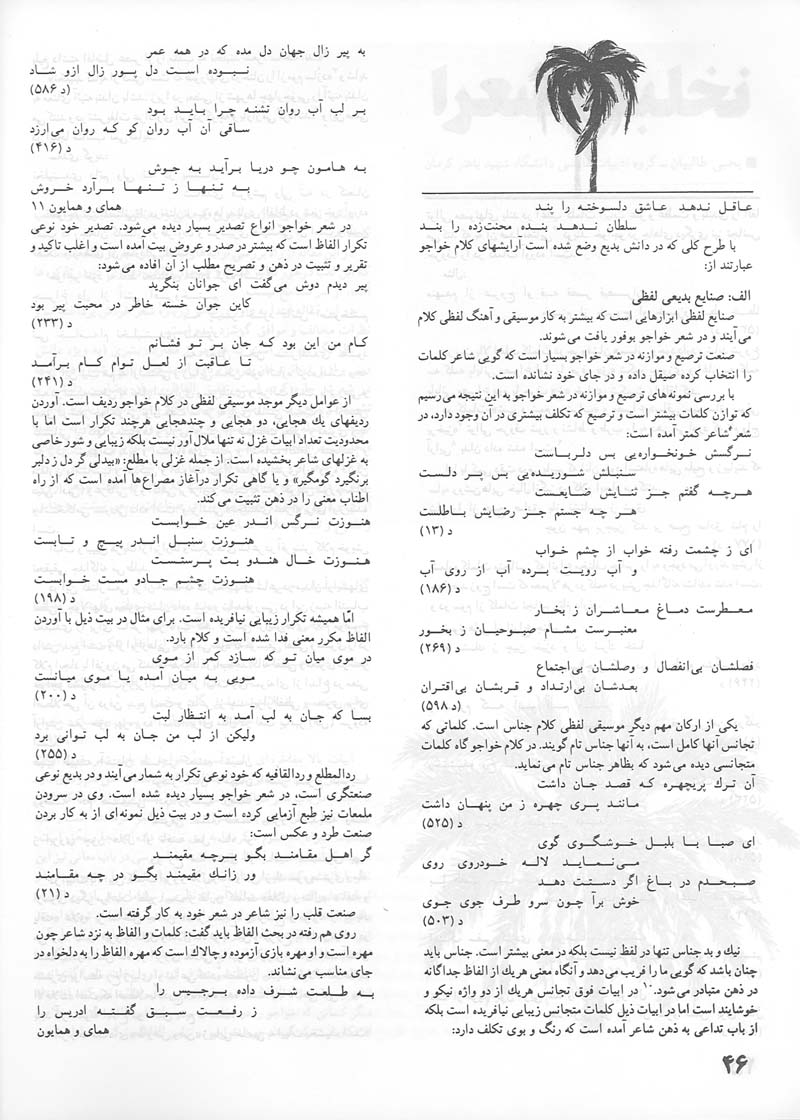 عاقل ندهد عاشق دلسوخته را پند
سلطان ندهد بنده محنت‌زده را بند
با طرح کلی که در دانش بدیع وضع شده است آرایشهای کلام خواجو
عبارتند از:
الف: صنایع بدیعی لفظی
صنایع لفظی ابزارهایی است که بیشتر به کار موسیقی و آهنگ لفظی کلام
می‌آیند و در شعر خواجو بوفور یافت می‌شوند.
صنعت ترصیع و موازنه در شعر خواجو بسیار است که گویی شاعر کلمات
را انتخاب کرده صیقل داده و در جای خود نشانده است.
با بررسی نمونه‌های ترصیع و موازنه در شعر خواجو به این نتیجه می‌رسیم
که توازن کلمات بیشتر است و ترصیع که تکلف بیشتری در آن وجود دارد، در
شعر شاعر کمتر آمده است:
نرگسش خونخواره‌یی بس دلرباست
سنبلش شوریده‌یی بس پر دلست
هرچه گفتم جز ثنایش ضایعست
هر چه جستم جز رضایش باطلست
د (۱۳)
ای ز چشمت رفته خواب از چشم خواب
و آب رویت برده آب از روی آب
د (۱۸۶)
معطرست دماغ معاشران ز بخار
معنبرست مشام صبوحیان ز بخور
د (۲۶۹)
فصلشان بی‌انفصال و وصلشان بی‌اجتماع
بعدشان بی‌ارتداد و قربشان بی‌اقتران
د (۵۹۸)
یکی از ارکان مهم دیگر موسیقی لفظی کلام جناس است. کلماتی که
تجانس آنها کامل است، به آنها جناس تام گویند. در کلام خواجو گاه کلمات
متجانسی دیده می‌شود که بظاهر جناس تام می‌نماید.
آن ترك پریچهره که قصد جان داشت
مانند پری چهره ز من پنهان داشت
د (۵۲۵)
ای صبا با بلبل خوشگوی گوی
می‌نماید لاله خودروی روی
صبحدم در باغ اگر دستت دهد
خوش برآ چون سرو طرف جوی جوی
د (۵۰۳)
نیك و بد جناس تنها در لفظ نیست بلکه در معنی بیشتر است. جناس باید
چنان باشد که گویی ما را فریب می‌دهد و آنگاه معنی هریك از الفاظ جداگانه
در ذهن متبادر می‌شود.۱۰ در ابیات فوق تجانس هریك از دو واژه نیکو و
خوشایند است اما در ابیات ذیل کلمات متجانس زیبایی نیافریده است بلکه
از باب تداعی به ذهن شاعر آمده است که رنگ و بوی تکلف دارد:
به پیر زال جهان دل مده که در همه عمر
نبوده است دل پور زال ازو شاد
(د ۵۸۶)
بر لب آب روان تشنه چرا باید بود
ساقی آن آب روان کو که روان می‌ارزد
د (۴۱۶)
به هامون چو دریا برآید به جوش
به تنها ز تنها برآرد خروش
همای و همایون ۱۱
در شعر خواجو انواع تصدیر بسیار دیده می‌شود. تصدیر خود نوعی
تکرار الفاظ است که بیشتر در صدر و عروض بیت آمده است و اغلب تاکید و
تقریر و تثبیت در ذهن و تصریح مطلب از آن افاده می‌شود:
پیر دیدم دوش می‌گفت ای جوانان بنگرید
کاین جوان خسته خاطر در محبت پیر بود
د (۲۳۳)
کام من این بود که جان بر تو فشانم
تا عاقبت از لعل توام کام برآمد
د (۲۴۱)
از عوامل دیگر موجد موسیقی لفظی در کلام خواجو ردیف است. آوردن
ردیفهای یك هجایی، دو هجایی و چندهجایی هرچند تکرار است اما با
محدودیت تعداد ابیات غزل نه تنها ملال‌آور نیست بلکه زیبایی و شور خاصی
به غزلهای شاعر بخشیده است. از جمله غزلی با مطلع: «بیدلی گر دل ز دلبر
برنگیرد گومگیر» و یا گاهی تکرار درآغاز مصراع‌ها آمده است که از راه
اطناب معنی را در ذهن تثبیت می‌کند.
هنوزت نرگس اندر عین خوابست
هنوزت سنبل اندر پیچ و تابست
هنوزت خال هندو بت پرستست
هنوزت چشم جادو مست خوابست
د (۱۹۸)
امّا همیشه تکرار زیبایی نیافریده است. برای مثال در بیت ذیل با آوردن
الفاظ مکرر معنی فدا شده است و کلام بارد.
در موی میان تو که سازد کمر از موی
مویی به میان آمده یا موی میانست
د (۲۰۰)
بسا که جان به لب آمد به انتظار لبت
ولیکن از لب من جان به لب توانی برد
د (۲۵۵)
ردالمطلع و ردالقافیه که خود نوعی تکرار به شمار می‌آیند و در بدیع نوعی
صنعتگری است، در شعر خواجو بسیار دیده شده است. وی در سرودن
ملمعات نیز طبع آزمایی کرده است و در بیت ذیل نمونه‌ای از به کار بردن
صنعت طرد و عکس است:
گر اهل مقامند بگو برچه مقیمند
ور زانك مقیمند بگو در چه مقامند
د (۲۱)
صنعت قلب را نیز شاعر در شعر خود به کار گرفته است.
روی هم رفته در بحث الفاظ باید گفت: کلمات و الفاظ به نزد شاعر چون
مهره است و او مهره بازی آزموده و چالاك است که مهره الفاظ را به دلخواه در
جای مناسب می‌نشاند.
به طلعت شرف داده برجیس را
ز رفعت سبق گفته ادریس را
همای و همایون
۴۶